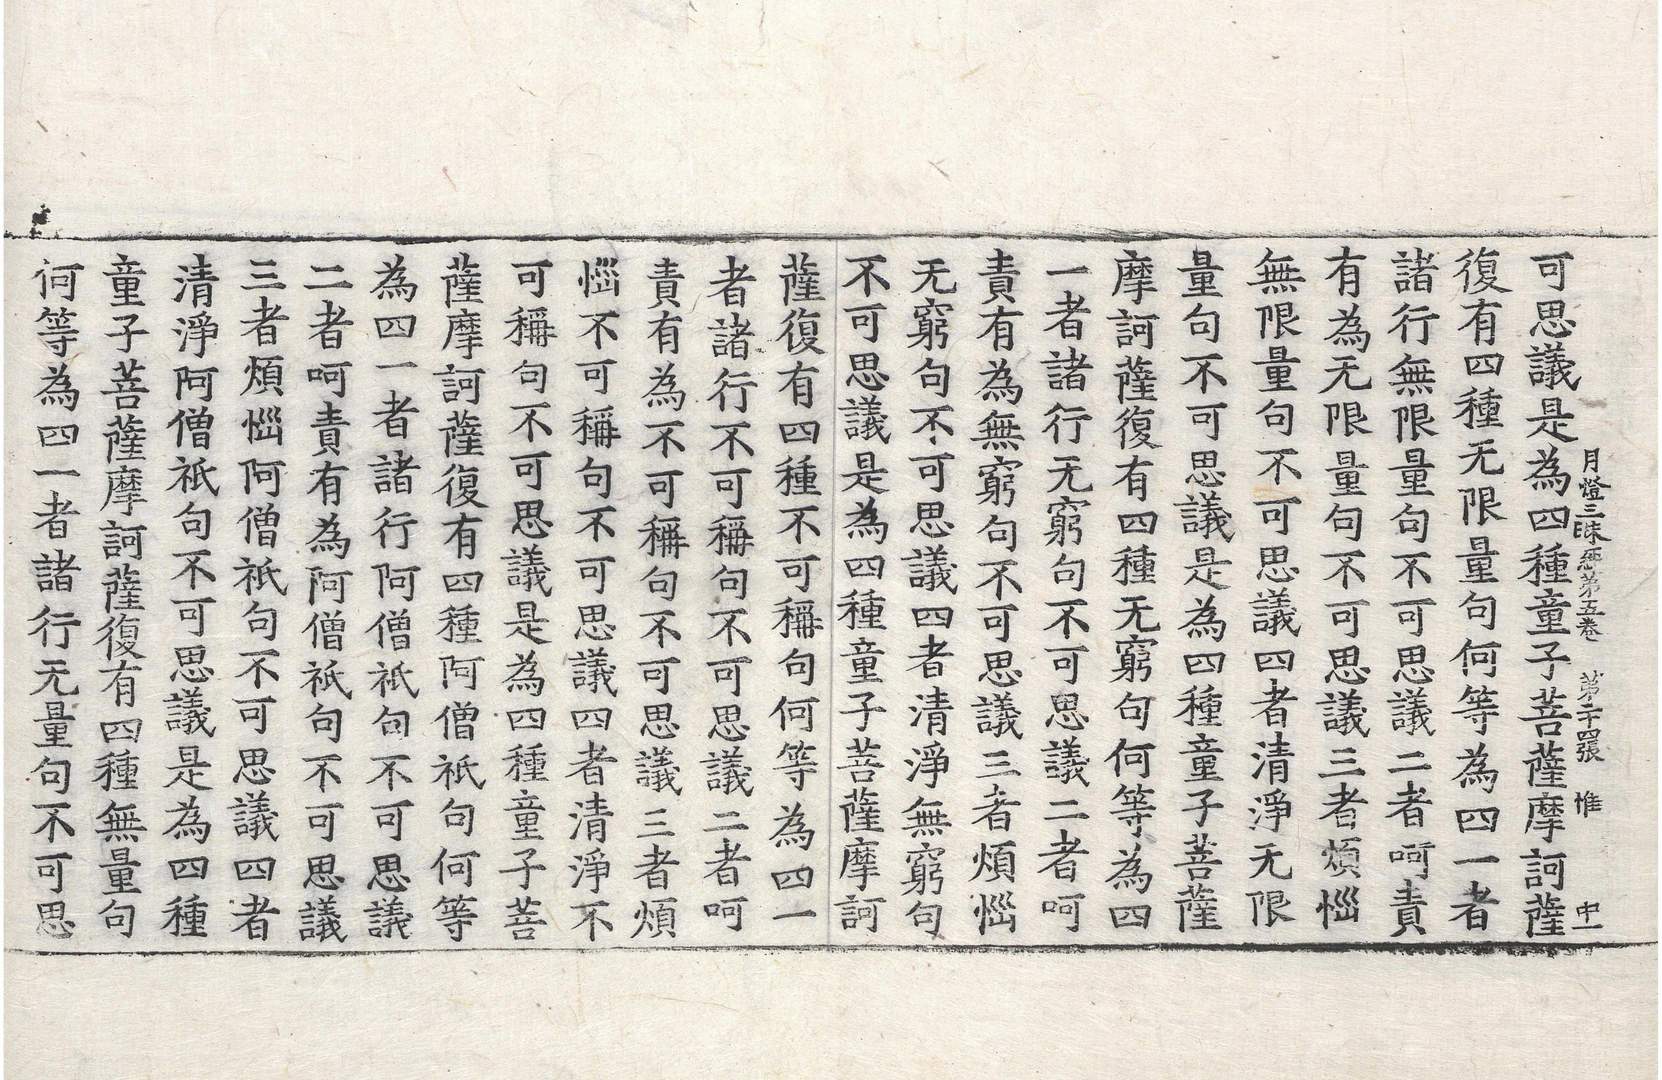 月燈三昧経第五卷 第二十四張 惟 中一
可思議是為四種童子菩薩摩訶薩
復有四種无限量句何等為四一者
諸行無限量句不可思議二者呵責
有為无限量句不可思議三者煩惱
無限量句不可思議四者清淨无限
量句不可思議是為四種童子菩薩
摩訶薩復有四種无窮句何等為四
一者諸行无窮句不可思議二者呵
責有為無窮句不可思議三者煩惱
无窮句不可思議四者清淨無窮句
不可思議是為四種童子菩薩摩訶
薩復有四種不可稱句何等為四一
者諸行不可稱句不可思議二者呵
責有為不可稱句不可思議三者煩
惱不可稱句不可思議四者清淨不
可稱句不可思議是為四種童子菩
薩摩訶薩復有四種阿僧祇句何等
為四一者諸行阿僧祇句不可思議
二者呵責有為阿僧祇句不可思議
三者煩惱阿僧祇句不可思議四者
清淨阿僧祇句不可思議是為四種
童子菩薩摩訶薩復有四種無量句
何等為四一者諸行无量句不可思